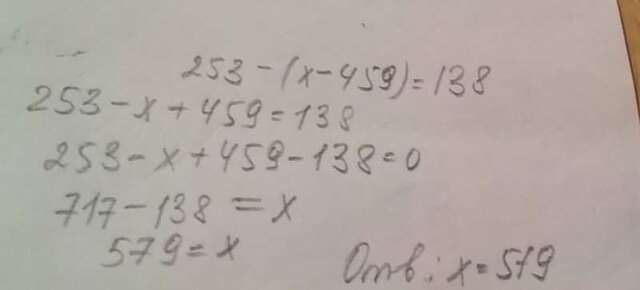 253-(x-459)=138
253-x+459=138
253-x+459-138=0
717-138=x
579=x
Отв: x=579